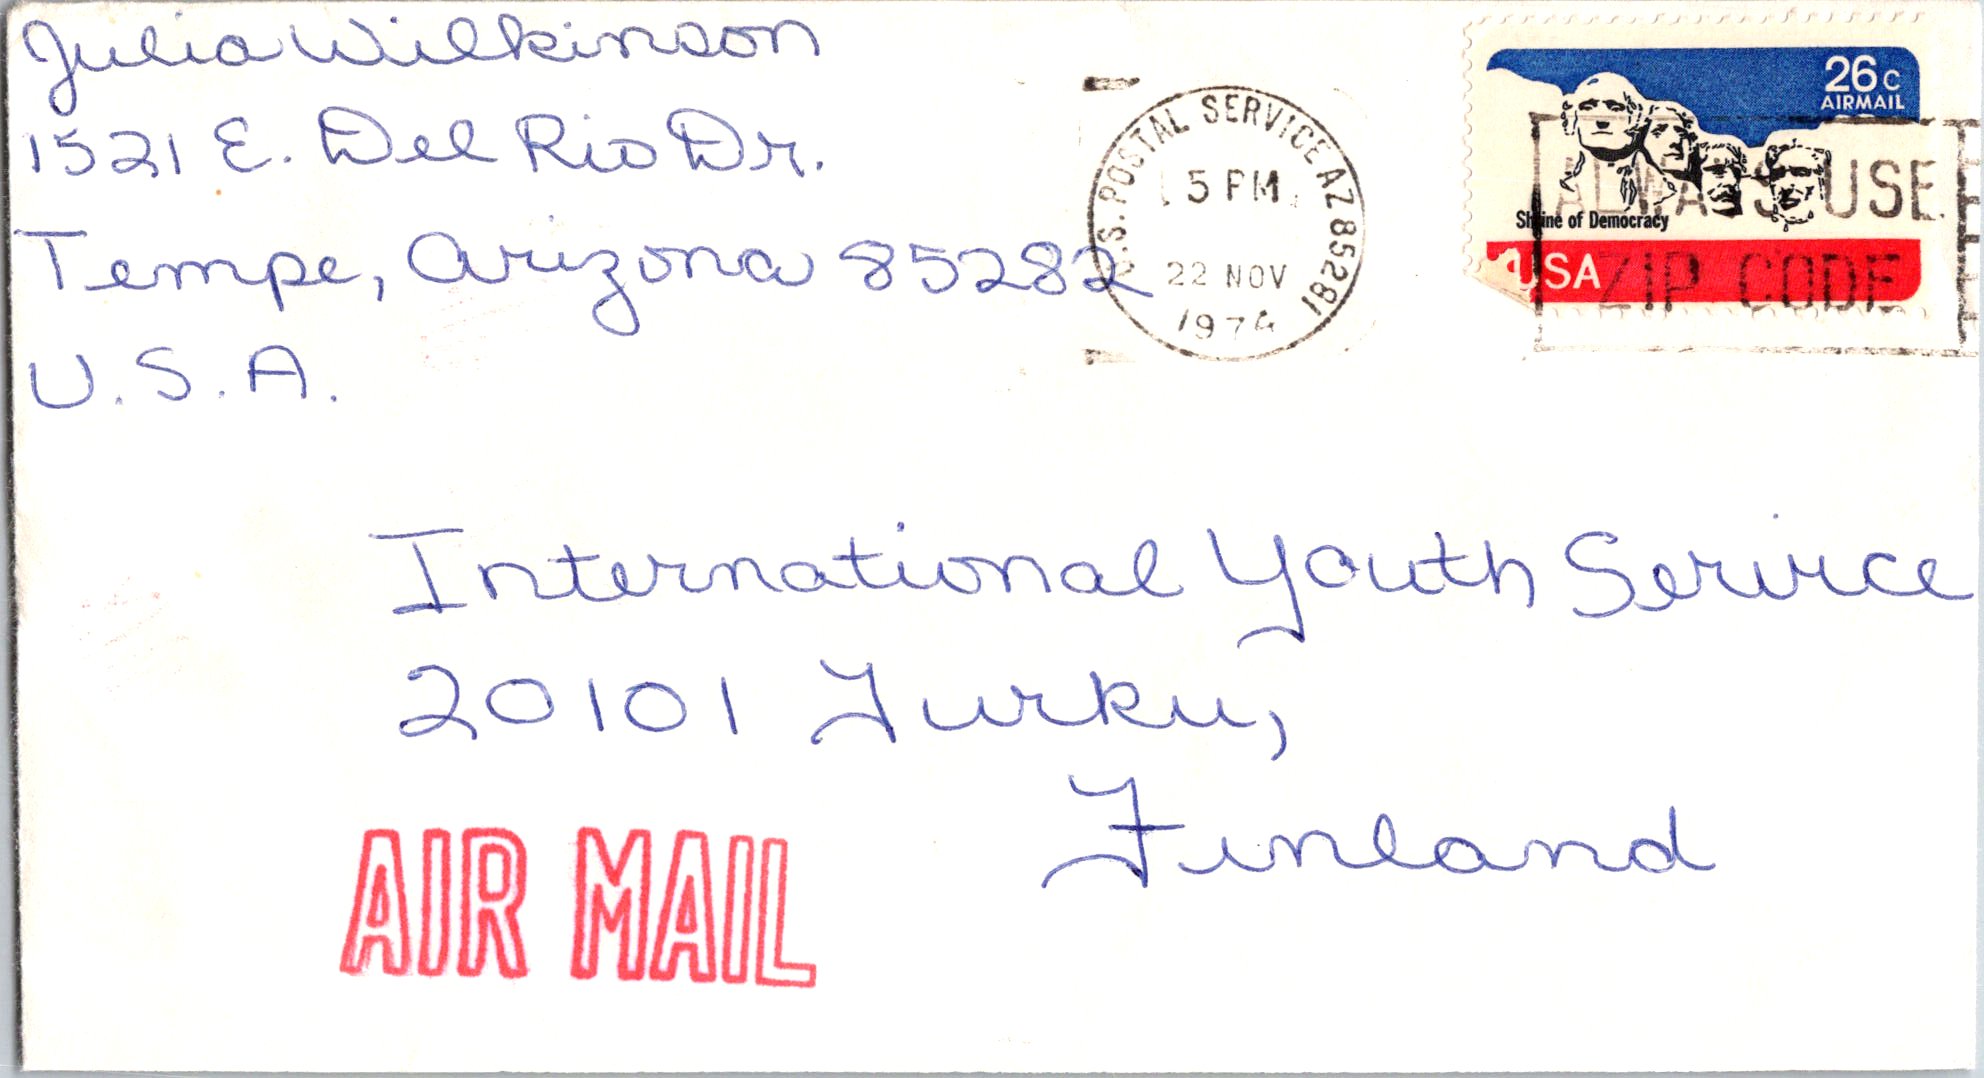 Julia Wilkinson
1521 E. Del Rio Dr.
Tempe, Arizona 85282
U.S.A.
U.S. POSTAL SERVICE AZ 85281
5 PM
22 NOV
1974
26c
AIRMAIL
Shrine of Democracy
USA
ALWAYS USE
ZIP CODE
International Youth Service
20101 Turku,
Finland
AIR MAIL